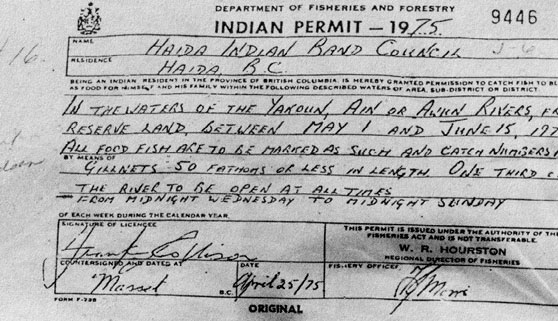 DEPARTMENT OF FISHERIES AND FORESTRY
INDIAN PERMIT — 1975.
9446
16.
NAME
HAIDA INDIAN BAND COUNCIL
RESIDENCE
HAIDA B.C.
BEING AN INDIAN RESIDENT IN THE PROVINCE OF BRITISH COLUMBIA, IS HEREBY GRANTED PERMISSION TO CATCH FISH TO BE
AS FOOD FOR HIMSELF AND HIS FAMILY WITHIN THE FOLLOWING DESCRIBED WATERS OF AREA, SUB-DISTRICT OR DISTRICT.
IN THE WATERS OF THE YAKOUN, AIN OR AWUN RIVERS,
RESERVE LAND, BETWEEN MAY 1 AND JUNE 15, 197
ALL FOOD FISH ARE TO BE MARKED AS SUCH AND CATCH NUMBERS
BY MEANS OF
GILLNETS 50 FATHOMS OR LESS IN LENGTH. ONE THIRD
THE RIVER TO BE OPEN AT ALL TIMES
FROM MIDNIGHT WEDNESDAY TO MIDNIGHT SUNDAY
OF EACH WEEK DURING THE CALENDAR YEAR.
SIGNATURE OF LICENCEE
THIS PERMIT IS ISSUED UNDER THE AUTHORITY OF THE
FISHERIES ACT AND IS NOT TRANSFERABLE.
Frank Collison
W. R. HOURSTON
REGIONAL DIRECTOR OF FISHERIES
COUNTERSIGNED AND DATED AT
Masset
B.C.
DATE
April 25/75
FISHERY OFFICER
FORM F-728
ORIGINAL